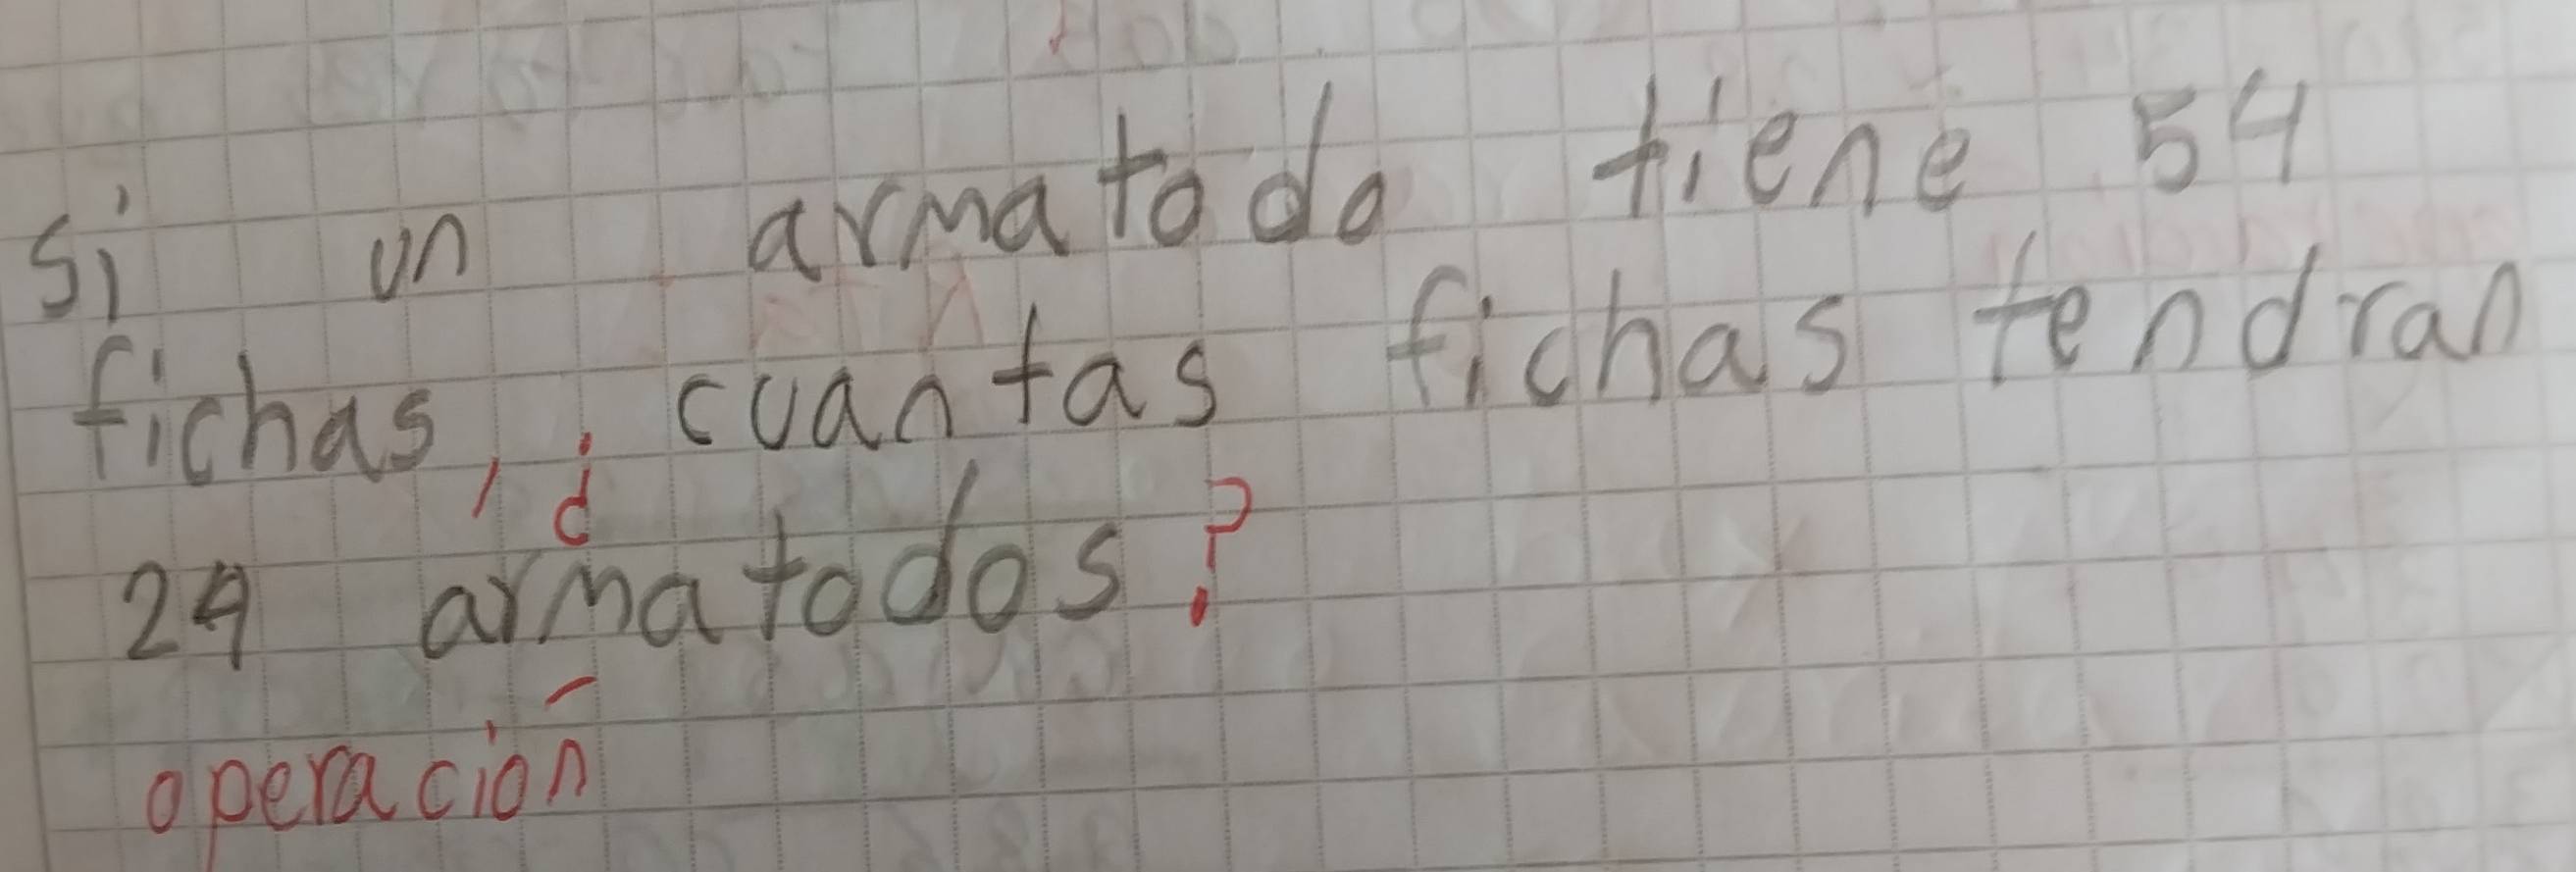 si un armatodo tiene 54
fichas, ¿cuantas fichas tendran
24 armatodos?
operación